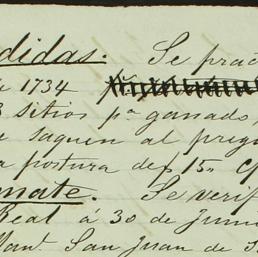 didas. Se prac
1734
sitios pa ganado
saquen al preg
postura de $15
mate. Se verif
Real á 30 de Juni
Mant San Juan de